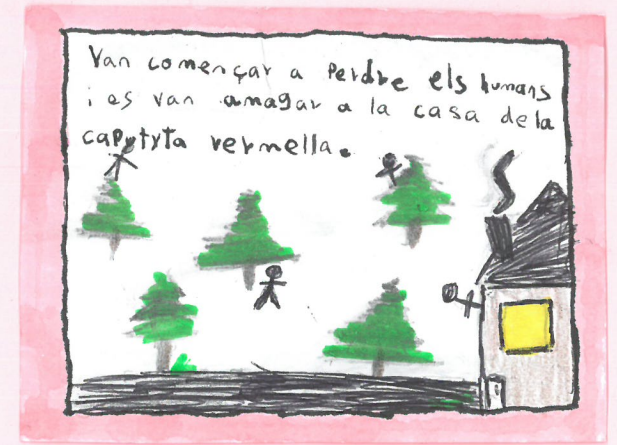 Van començar a Perdre els humans
i es van amagar a la casa dela
caputyta vermella.